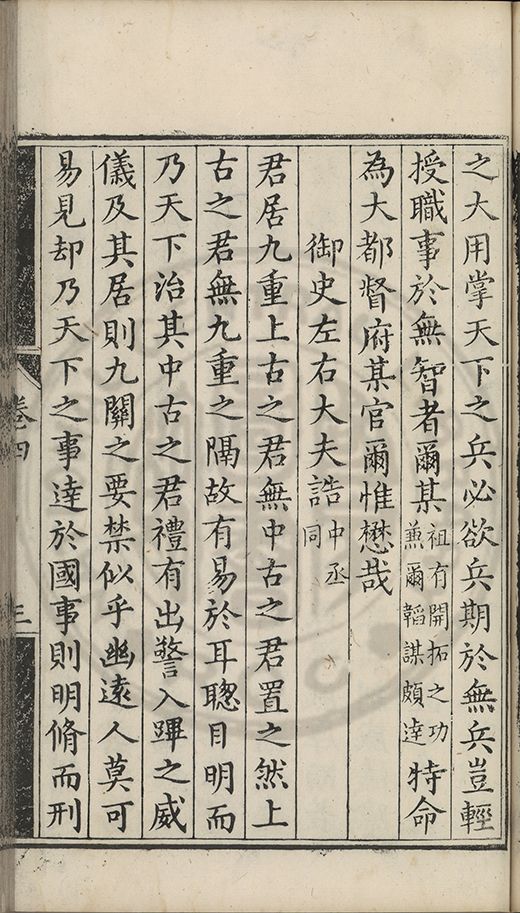 之大用掌天下之兵必欲兵期於無兵豈輕
授職事於無智者爾某祖有開拓之功兼爾韜謀頗達特命
為大都督府某官爾惟懋哉
御史左右大夫誥中丞同
君居九重上古之君無中古之君置之然上
古之君無九重之隔故有易於耳聰目明而
乃天下治其中古之君禮有出警入蹕之威
儀及其居則九關之要禁似乎幽遠人莫可
易見却乃天下之事達於國事則明脩而刑
卷四
三